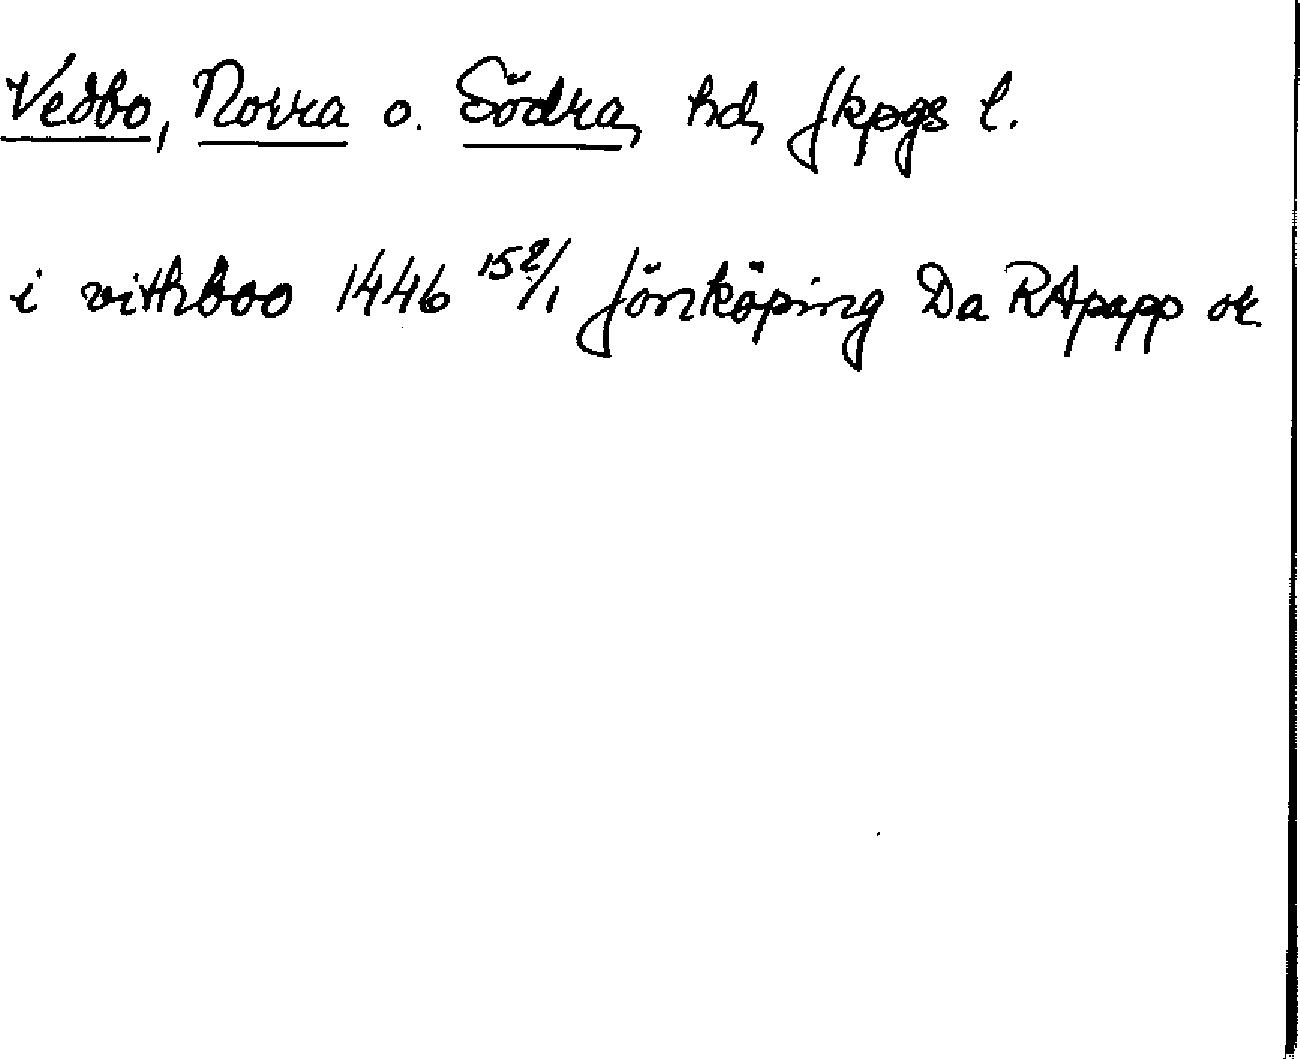 Vedbo, Norra o. Södra, hd, Jkpgs l.
i vithboo 1446 15 2/1 Jönköping Da RApapp or